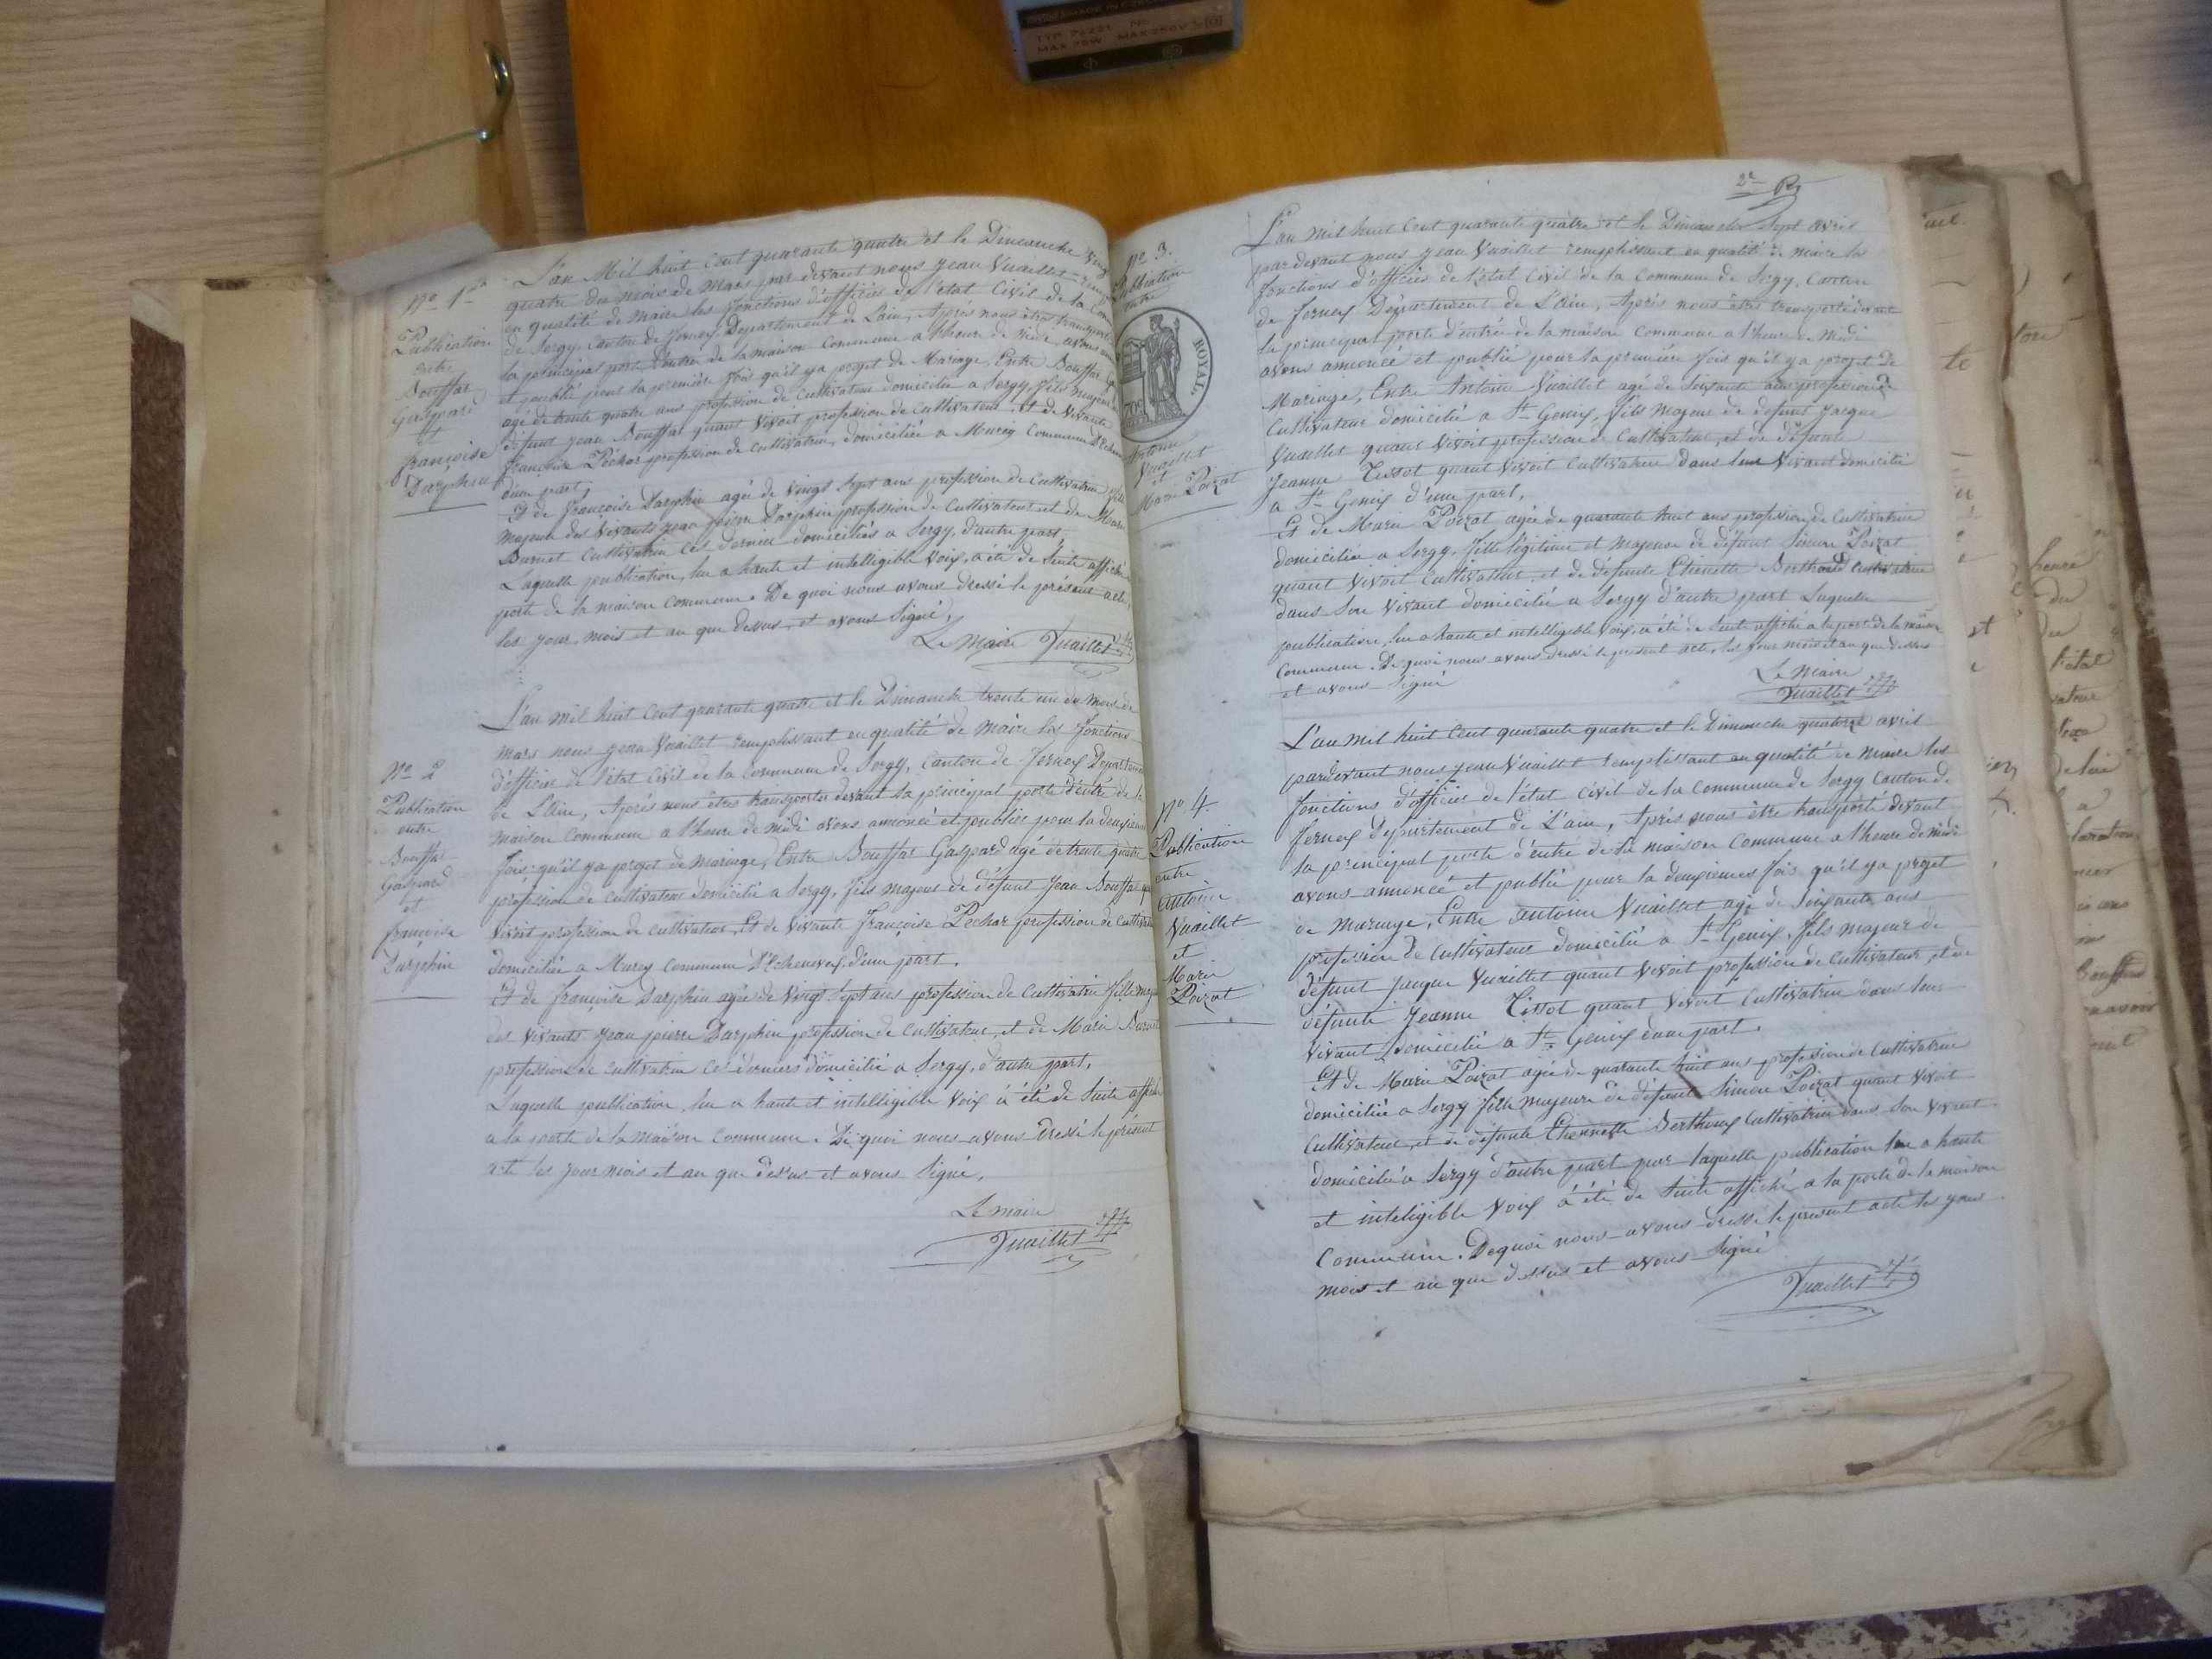 N° 1er
Publication
entre
Bouffar
Gaspard
et
françoise
Darphin
L'an Mil huit Cent quarante quatre et le Dimanche vingt
quatre du mois de Mars par devant nous Jean Vuaillet
en qualité de Maire les fonctions d'officier de l'état Civil de la
de Sergy, Canton de ferney Departement de L'ain, Après nous être transporté
la principal porte d'entrée de la maison Commune a l'heure de Midi, avons
et publié pour la première fois qu'il y a projet de Mariage, Entre Bouffar
agé de trente quatre ans profession de Cultivateur domicilié a Sergy, fils majeur
défunt Jean Bouffar quant Vivoit profession de Cultivateur, Et de Vivante
françoise Péchar profession de Cultivatrice, domiciliée a Murcy Commune
d'une part,
Et de françoise Darphin agée de Vingt Sept ans profession de Cultivatrice fille
majeure des Vivants Jean pierre Darphin profession de Cultivateur et de Marie
Burnet Cultivatrice Ces dernier domiciliés a Sergy, d'autre part,
Laquelle publication, lue a haute et intelligible Voix, a été de Suite affiché
porte de la maison commune. De quoi nous avons dressé le présent acte,
les jour, mois et an que dessus, et avons Signé,
Le Maire Vuaillet
N° 2
Publication
entre
Bouffar
Gaspard
et
françoise
Darphin
L'an mil huit Cent quarante quatre et le Dimanche trente un du mois de
mars nous Jean Vuaillet remplissant en qualité de Maire les fonctions
d'officier de l'état Civil de la Commune de Sergy, Canton de Ferney Departement
de L'ain, Après nous être transporter devant la principal porte d'entré de la
maison Commune a l'heure de midi avons annoncé et publiér pour la deuxième
fois qu'il y a projet de mariage, Entre Bouffar Gaspard agé de trente quatre
profession de cultivateur domicilié a Sergy, fils majeur de défunt Jean Bouffar
Vivoit profession de cultivateur, Et de Vivante françoise Pechar profession de
domiciliée a Murcy Commune D'Echenevex, d'une part.
Et de françoise Darphin agée de Vingt Sept ans profession de Cultivatrice fille
des Vivants Jean pierre Darphin profession de Cultivateur, et de Marie
profession de cultivatrice Ces derniers domicilié a Sergy, d'autre part,
Laquelle publication, lue a haute et intelligible Voix à été de Suite
a la porte de la maison Commune. De quoi nous avons dressé le présent
acte les jour mois et an que dessus et avons Signé.
Le maire
Vuaillet
2e
N° 3.
Publication
entre
ROYAL.
70c
Antoine
Vuaillet
et
Marie Poizat
L'an mil huit Cent quarante quatre et le Dimanche Sept avril
pardevant nous Jean Vuaillet remplissant en qualité de maire la
fonctions d'officier de l'état Civil de la Commune de Sergy, Canton
de ferney Département de L'ain, Après nous être transporté devant
la principal porte d'entrée de la maison Commune a l'heure de Midi
avons annoncé et publié pour la première fois qu'il y a projet de
Mariage, Entre Antoine Vuaillet agé de Soixante ans profession de
Cultivateur domicilié a St Genix, fils majeur de défunt Jacque
Vuaillet quant Vivoit profession de Cultivateur, et de défunte
Jeanne Tissot quant Vivoit Cultivatrice dans leur Vivant domicilié
a St Genix d'une part,
Et de Marie Poizat agée de quarante huit ans profession de Cultivatrice
domiciliée a Sergy, fille légitime et majeure de défunt Simon Poizat
quant Vivoit Cultivateur, et de defunte Etiennette Cultivatrice
dans Son Vivant domicilié a Sergy d'autre part Laquelle
publication, lue a haute et intelligible Voix, a été de Suite affiché a la porte de la maison
Commune. De quoi nous avons dressé le présent acte, les jour mois et an que dessus
et avons Signé
Le Maire
Vuaillet
N° 4.
Publication
entre
Antoine
Vuaillet
et
Marie
Poizat
L'an mil huit Cent quarante quatre et le Dimanche quatorze avril
pardevant nous Jean Vuaillet remplissant en qualité de Maire les
fonctions d'officier de l'état Civil de la Commune de Sergy Canton de
ferney Département de L'ain, Après nous être transporté devant
la principal porte d'entre de la maison Commune a l'heure de midi
avons annoncé et publié pour la deuxièmes fois qu'il y a projet
de Mariage, Entre Antoine Vuaillet agé de Soixante ans
profession de Cultivateur domicilié a St Genix, fils majeur de
défunt Jacque Vuaillet quant Vivoit profession de Cultivateur, et de
défunte Jeanne Tissot quant Vivoit Cultivatrice dans leur
Vivant domicilié a St Genix d'une part.
Et de Marie Poizat agée de quarante huit ans profession de Cultivatrice
domiciliée a Sergy fille majeure de défunt Simon Poizat quant Vivoit
Cultivateur, et de défunte Etiennette Berthoux Cultivatrice dans Son Vivant
domicilié a Sergy d'autre part par laquelle publication lue a haute
et inteligible Voix à été de Suite affiché a la porte de la maison
Commune. De quoi nous avons dressé le présent acte les jour
mois et an que dessus et avons Signé
Vuaillet